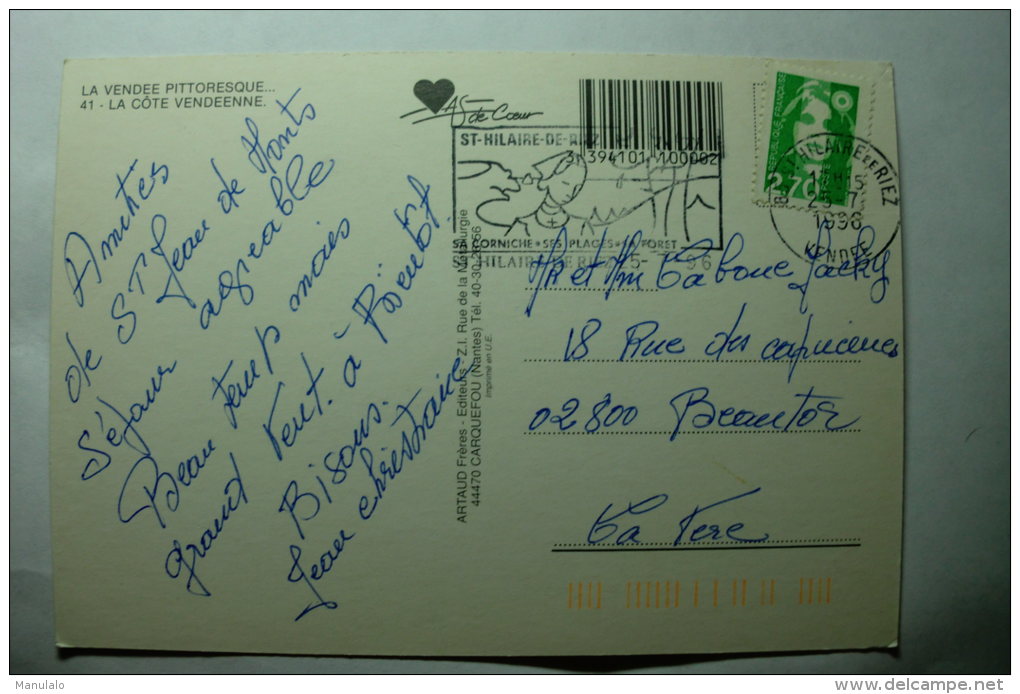 LA VENDEE PITTORESQUE...
41 - LA CÔTE VENDEENNE.
AS de Cœur
ST-HILAIRE-DE-RIEZ
3 394101 100002
SA CORNICHE * SES PLAGES * SA FORET
ST HILAIRE DE RIEZ
REPUBLIQUE FRANÇAISE
2,70
ST HILAIRE DE RIEZ
1996
VENDEE
Amitiés
de St Jean de Monts
Séjour agréable
Beau temps mais
grand Vent. à Bientôt.
Bisous.
Jean Christiane
ARTAUD Frères - Editeurs - Z.I. Rue de la Métallurgie
44470 CARQUEFOU (Nantes) Tél. 40-30
Imprimé en U.E.
Mr et Mm Jacky
18 Rue des
02800 Beautor
La Fere
Manulalo
delcampe.net